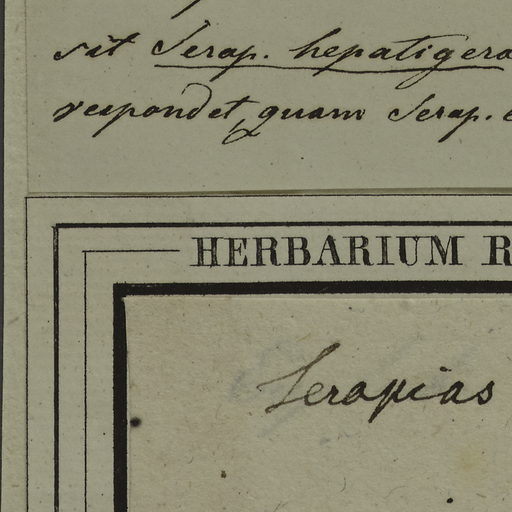 sit Serap. hepatigera
respondet, quam Serap.
HERBARIUM R
Serapias